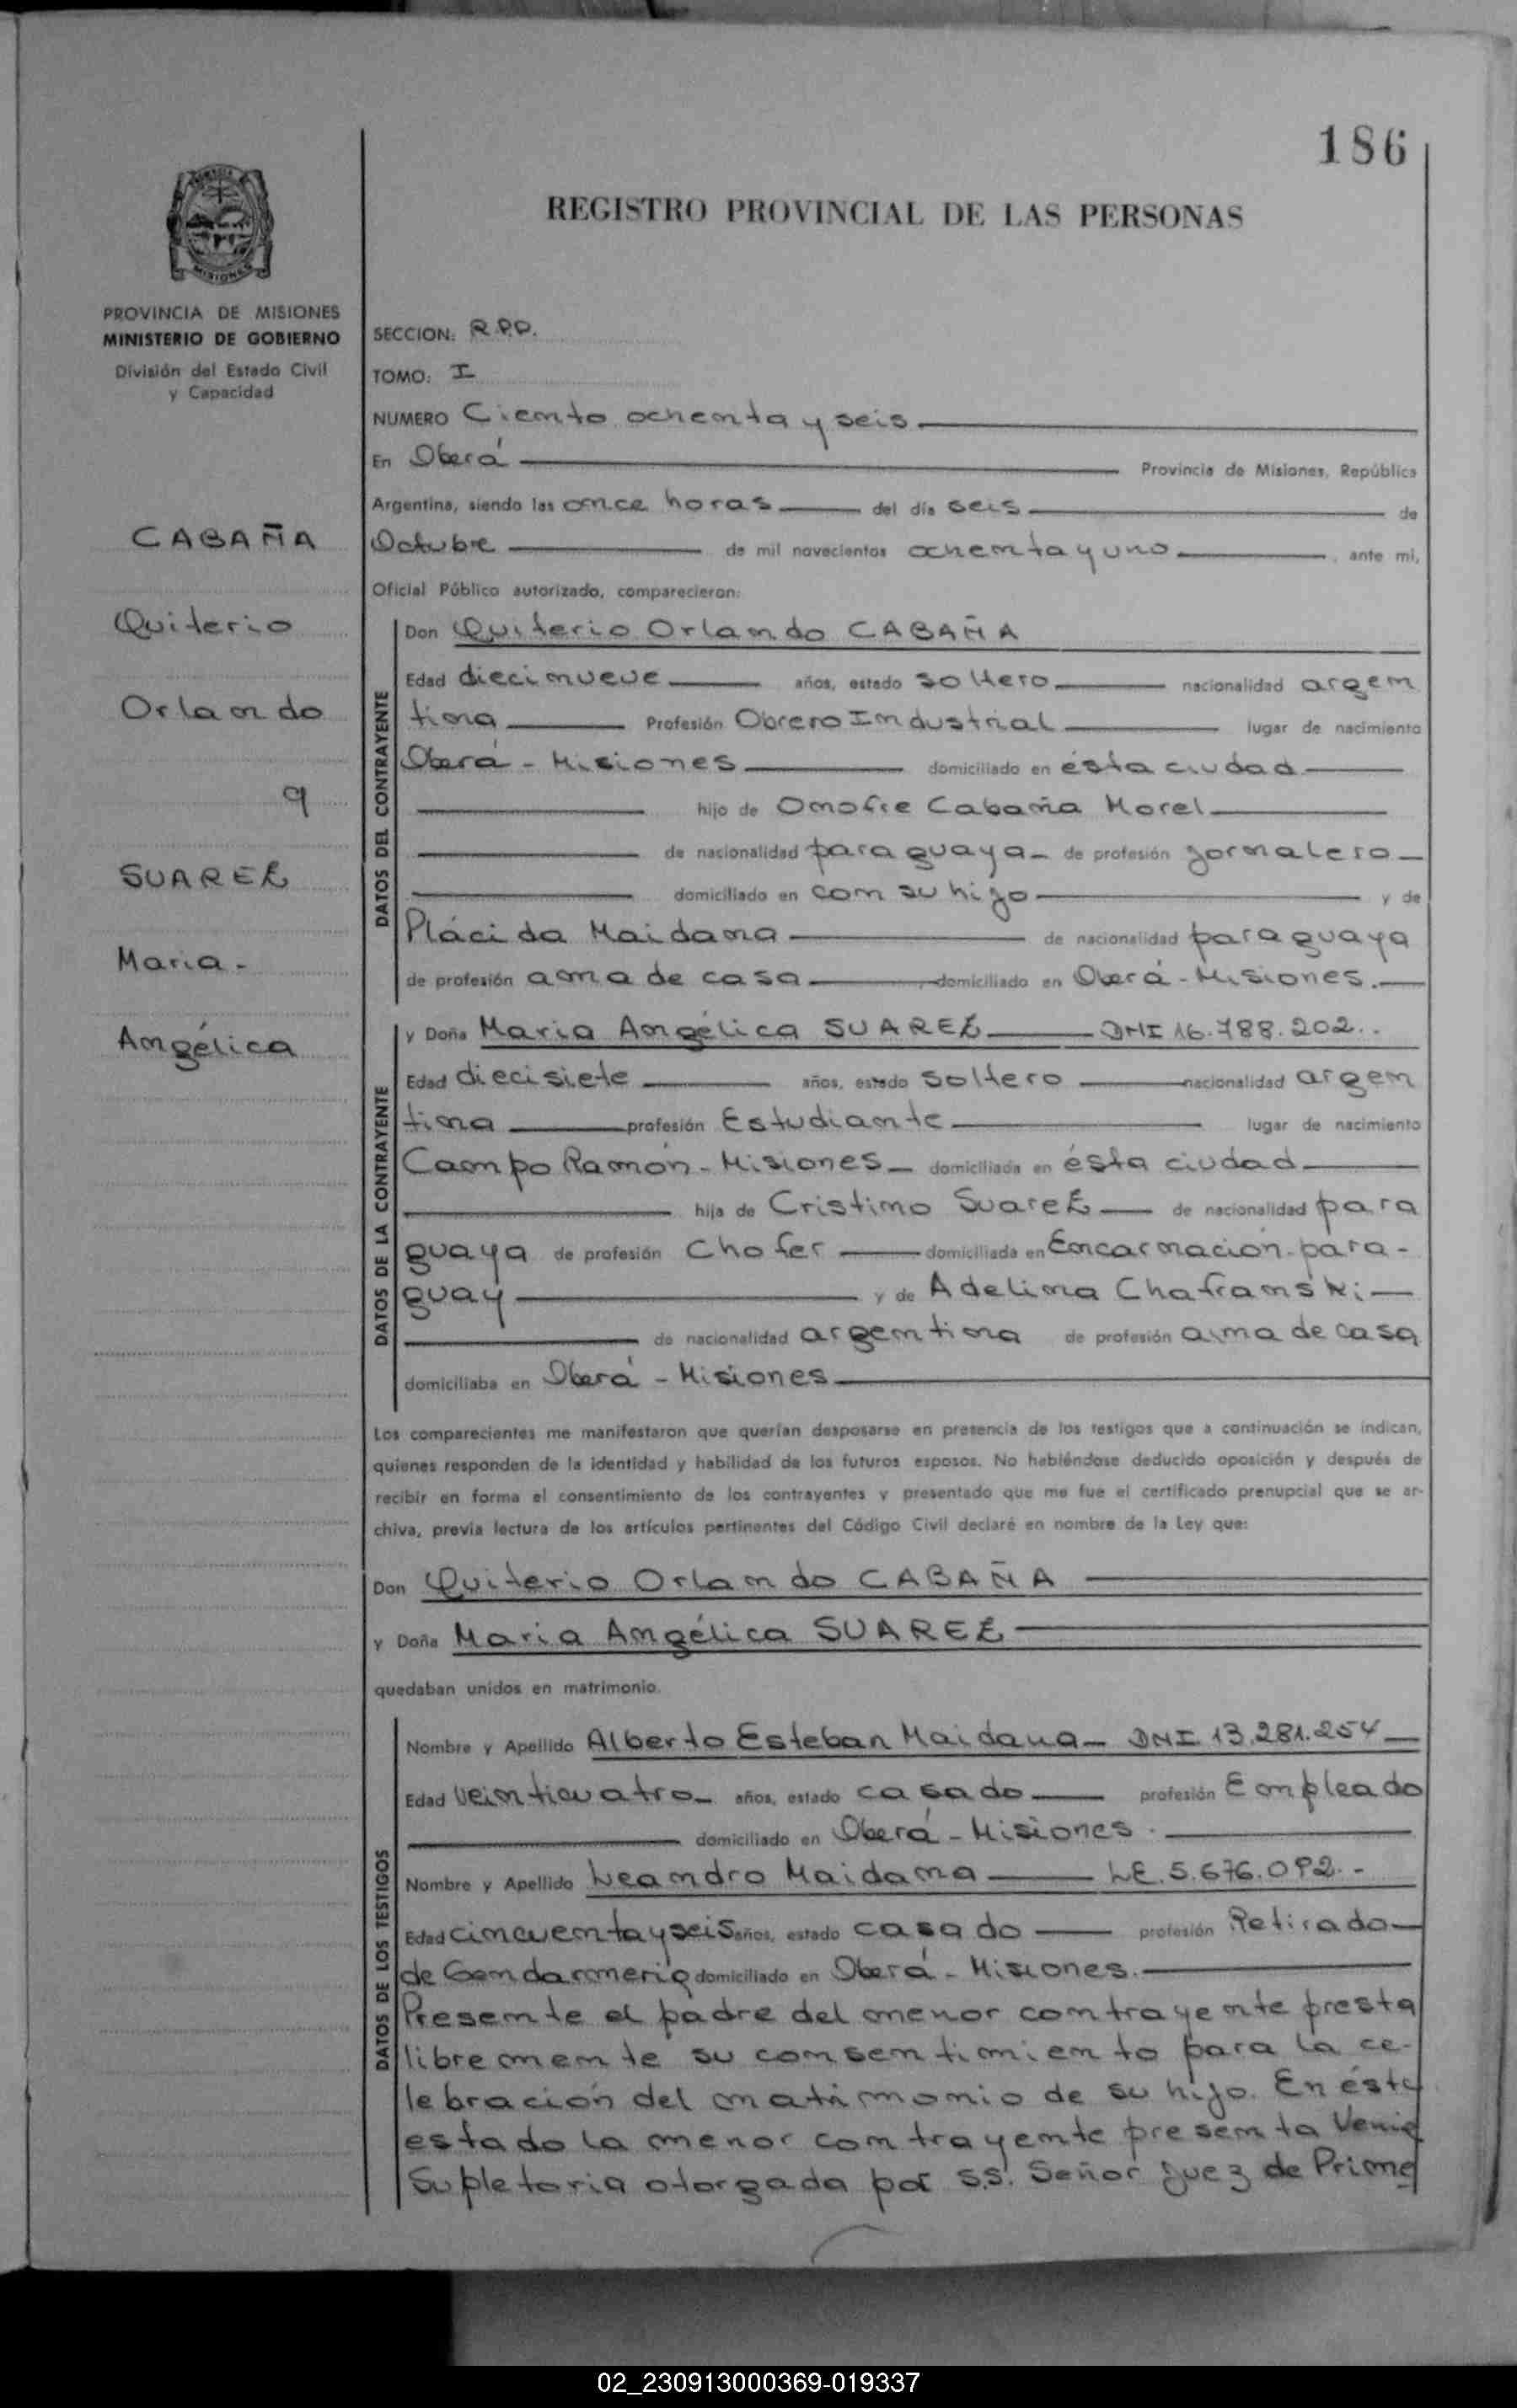 186
REGISTRO PROVINCIAL DE LAS PERSONAS
MISIONES
PROVINCIA DE MISIONES
MINISTERIO DE GOBIERNO
División del Estado Civil
y Capacidad
CABAÑA
Quiterio
Orlando
SUAREZ
Maria -
Angélica
SECCION: R.P.P.
TOMO: I
NUMERO Ciento ochenta y seis
En Oberá Provincia de Misiones, República
Argentina, siendo las once horas del día seis de
Octubre de mil novecientos ochenta y uno, ante mi,
Oficial Público autorizado, comparecieron:
DATOS DEL CONTRAYENTE
Don Quiterio Orlando CABAÑA
Edad diecinueve años, estado soltero nacionalidad argen
tina Profesión Obrero Industrial lugar de nacimiento
Oberá - Misiones domiciliado en ésta ciudad
hijo de Onofre Cabaña Morel
de nacionalidad paraguaya de profesión jornalero
domiciliado en con su hijo y de
Plácida Maidana de nacionalidad paraguaya
de profesión ama de casa domiciliado en Oberá - Misiones.
DATOS DE LA CONTRAYENTE
y Doña Maria Angélica SUAREZ DNI 16.788.202..
Edad diecisiete años, estado soltero nacionalidad argen
tina profesión Estudiante lugar de nacimiento
Campo Ramón - Misiones domiciliada en ésta ciudad
hija de Cristino Suarez de nacionalidad para
guaya de profesión Chofer domiciliada en Encarnación - para-
guay y de Adelina Chafranski
de nacionalidad argentina de profesión ama de casa
domiciliaba en Oberá - Misiones
Los comparecientes me manifestaron que querían desposarse en presencia de los testigos que a continuación se indican,
quienes responden de la identidad y habilidad de los futuros esposos. No habiéndose deducido oposición y después de
recibir en forma el consentimiento de los contrayentes y presentado que me fue el certificado prenupcial que se ar-
chiva, previa lectura de los artículos pertinentes del Código Civil declaré en nombre de la Ley que:
Don Quiterio Orlando CABAÑA
y Doña Maria Angélica SUAREZ
quedaban unidos en matrimonio.
DATOS DE LOS TESTIGOS
Nombre y Apellido Alberto Esteban Maidana DNI 13.281.254
Edad veinticuatro años, estado casado profesión Empleado
domiciliado en Oberá - Misiones.
Nombre y Apellido Leandro Maidana LE. 5.676.092.-
Edad cincuenta y seis años, estado casado profesión Retirado
de Gendarmeria domiciliado en Oberá - Misiones.
Presente el padre del menor contrayente presta
libremente su consentimiento para la ce-
lebración del matrimonio de su hijo. En éste
estado la menor contrayente presenta Venia
Supletoria otorgada por S.S. Señor Juez de Prime
02_230913000369-019337